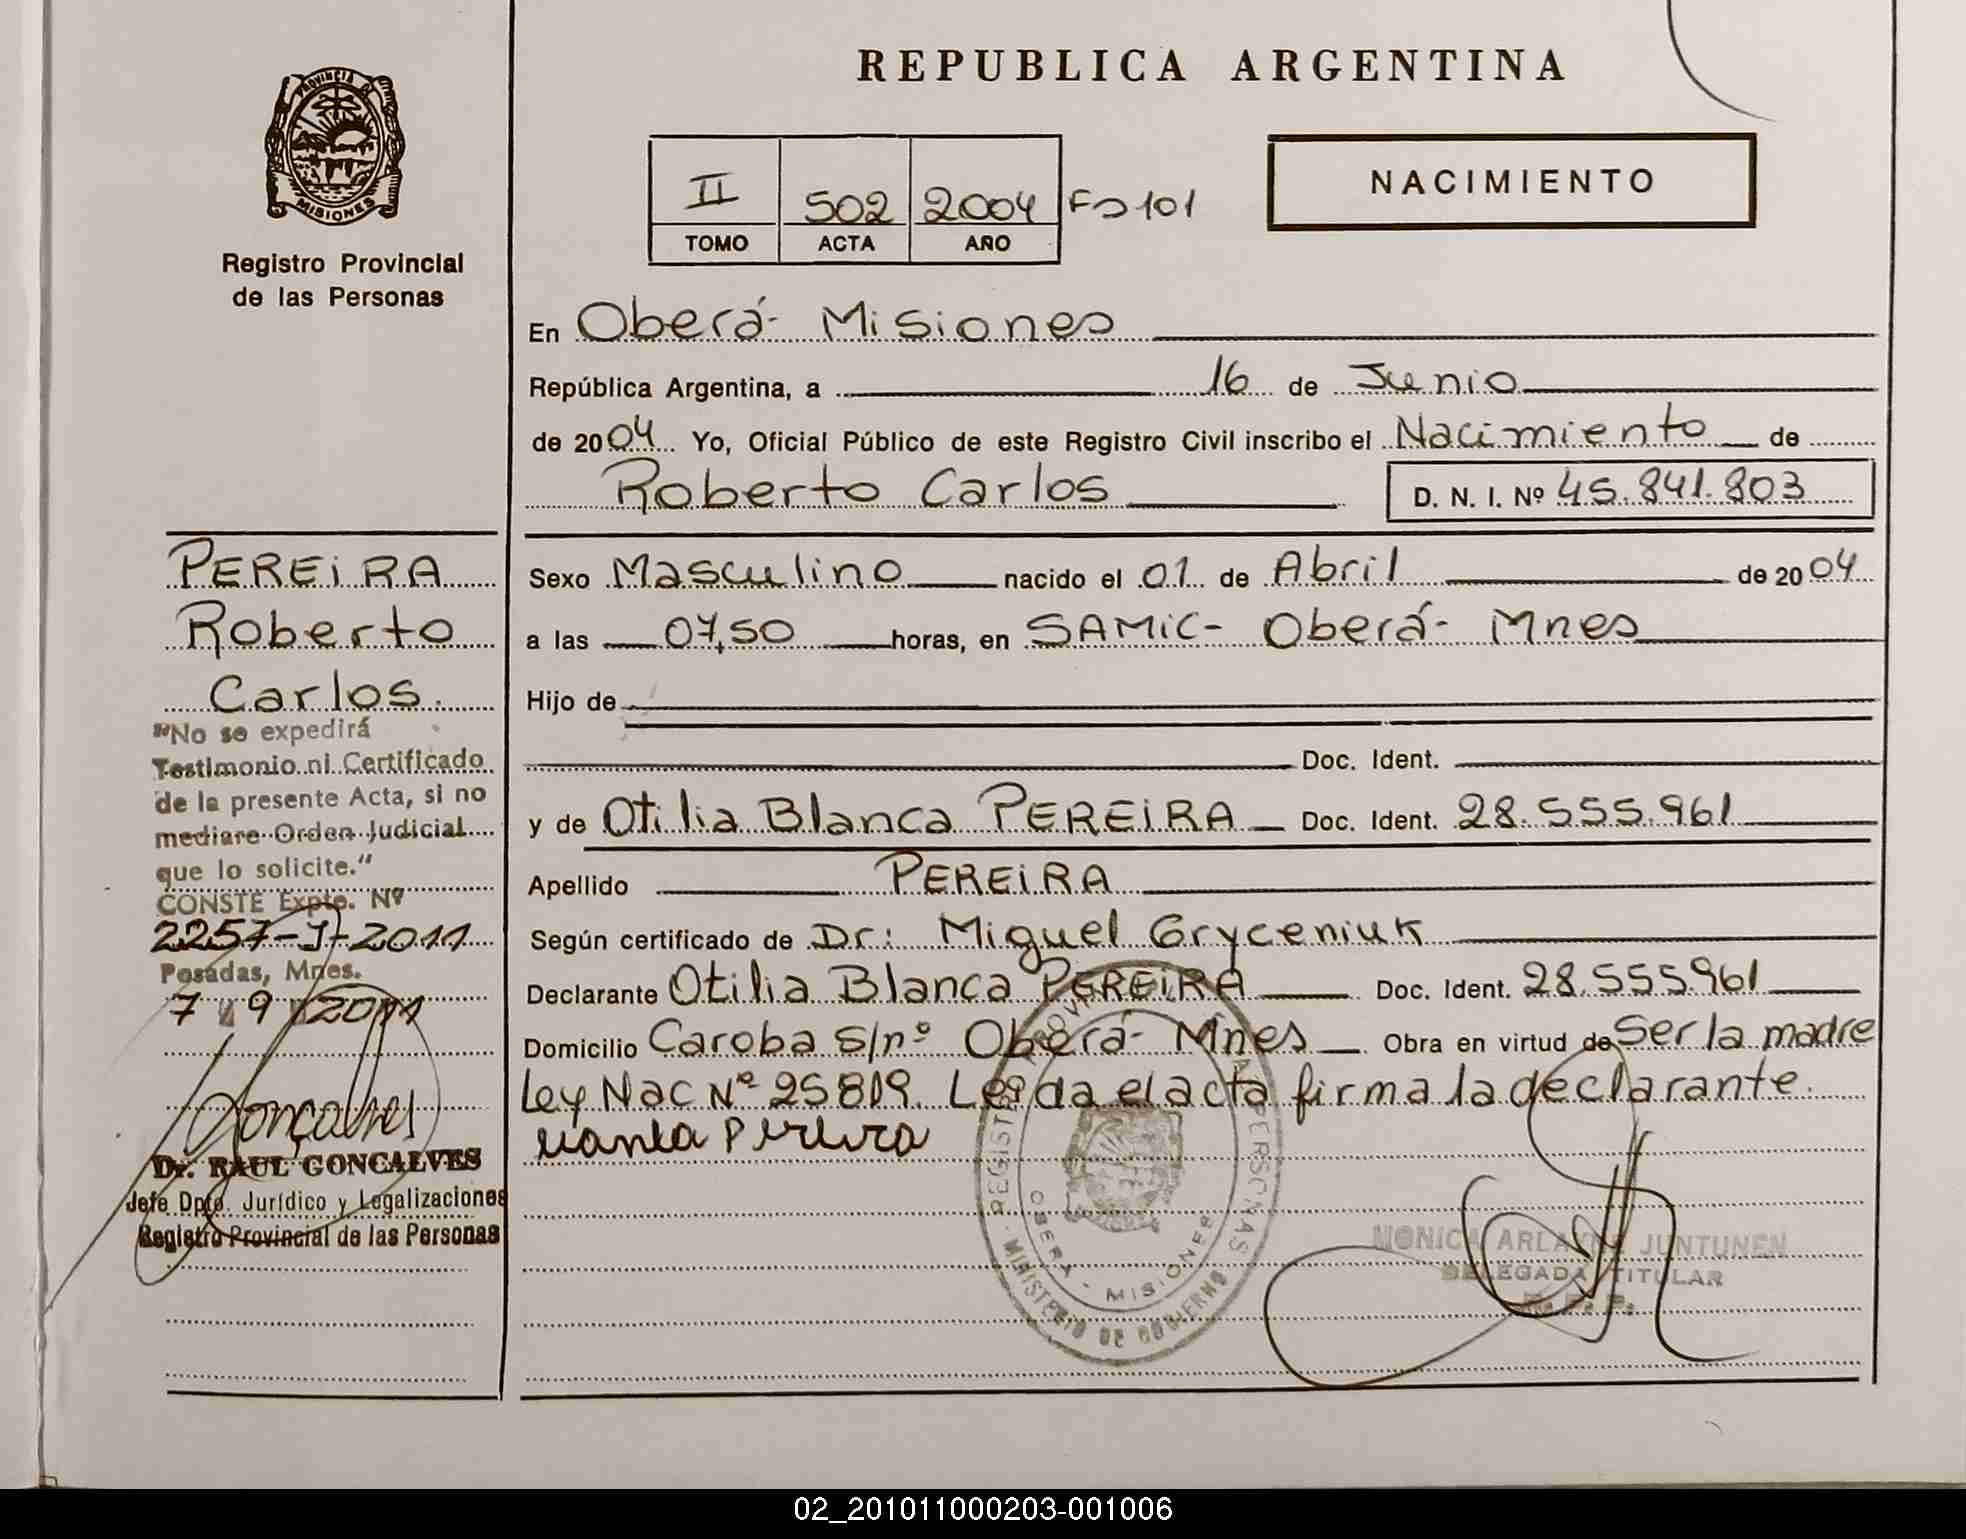 REPUBLICA ARGENTINA
PROVINCIA DE
MISIONES
Registro Provincial
de las Personas
II 502 2004 Fº 101
TOMO ACTA AÑO
NACIMIENTO
En Oberá- Misiones
República Argentina, a 16 de Junio
de 2004 Yo, Oficial Público de este Registro Civil inscribo el Nacimiento de
Roberto Carlos D. N. I. Nº 45.841.803
Sexo Masculino nacido el 01 de Abril de 2004
a las 07,50 horas, en SAMIC- Oberá- Mnes
Hijo de
Doc. Ident.
y de Otilia Blanca PEREIRA Doc. Ident. 28.555.961
Apellido PEREIRA
Según certificado de Dr: Miguel Gryceniuk
Declarante Otilia Blanca PEREIRA Doc. Ident. 28.555.961
Domicilio Caroba s/nº Oberá- Mnes Obra en virtud de Ser la madre
Ley Nac Nº 25819. Leída el acta firma la declarante.
Pereira
PEREIRA
Roberto
Carlos.
"No se expedirá
Testimonio ni Certificado
de la presente Acta, si no
mediare Orden Judicial
que lo solicite."
CONSTE Expte. Nº
2257-J-2011
Posadas, Mnes.
7 9 2011
Gonçalves
Dr. RAUL GONCALVES
Jefe Dpto. Jurídico y Legalizaciones
Registro Provincial de las Personas
REGISTRO PROVINCIAL PERSONAS
OBERA - MISIONES
MINISTERIO DE GOBIERNO
MONICA ARLAYNE JUNTUNEN
DELEGADA TITULAR
R. P. P.
02_201011000203-001006